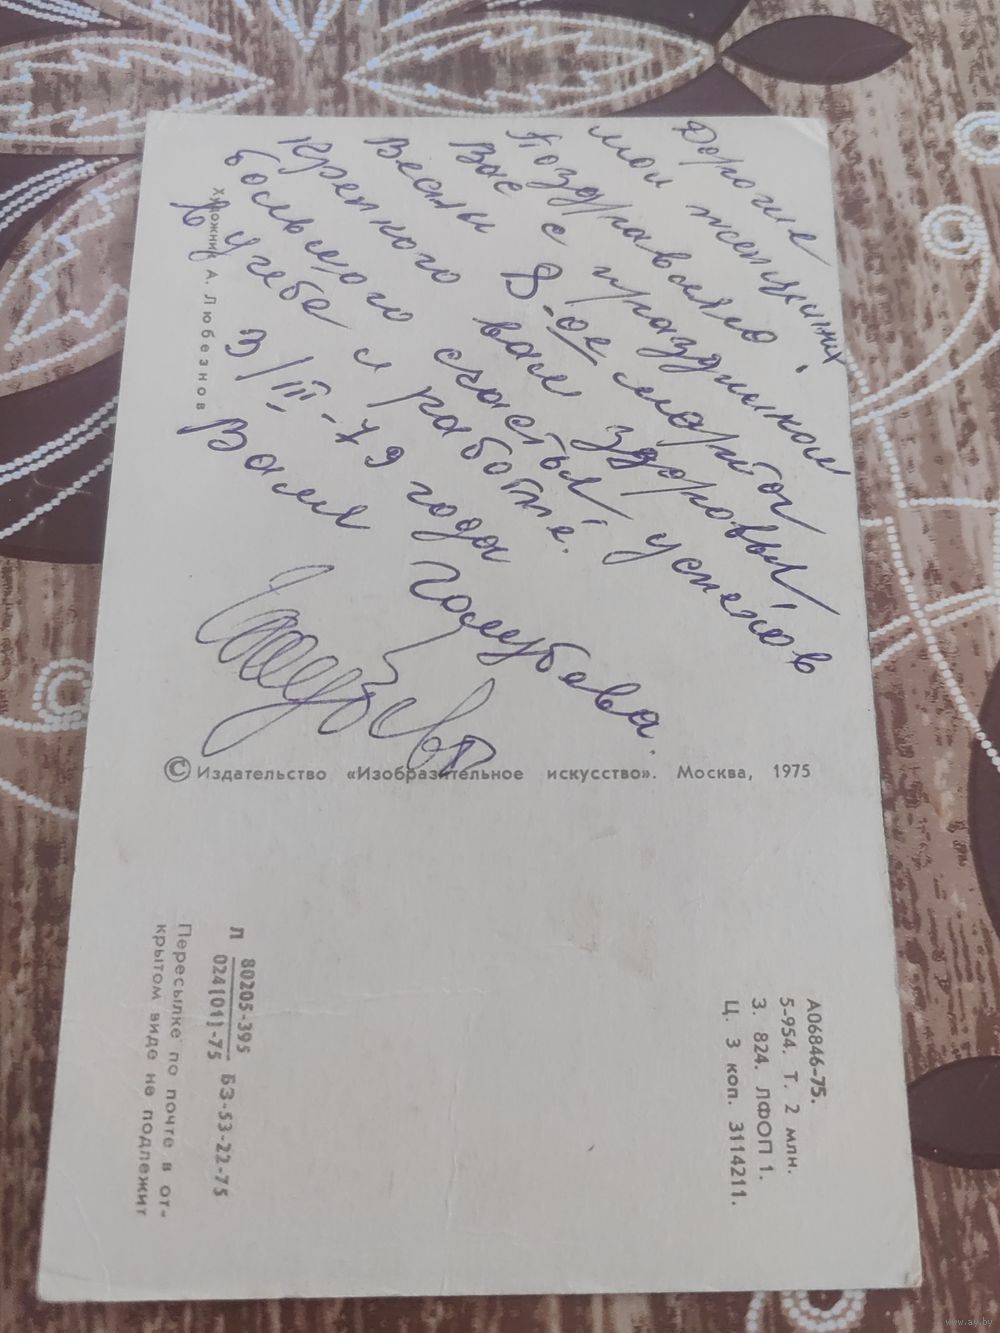 Дорогие
мои женщины
Поздравляю
Вас с праздником
8-ое марта
Весны
Крепкого вам здоровья
большого счастья успехов
в учебе и работе.
3/III-79 года
Валя Голубева.
Художник А. Любезнов
© Издательство «Изобразительное искусство». Москва, 1975
А06846-75.
5-954. Т. 2 млн.
З. 824. ЛФОП 1.
Ц. 3 коп. 3114211.
Л 80205-395
024(01)-75 БЗ-53-22-75
Пересылке по почте в от-
крытом виде не подлежит
www.ay.by